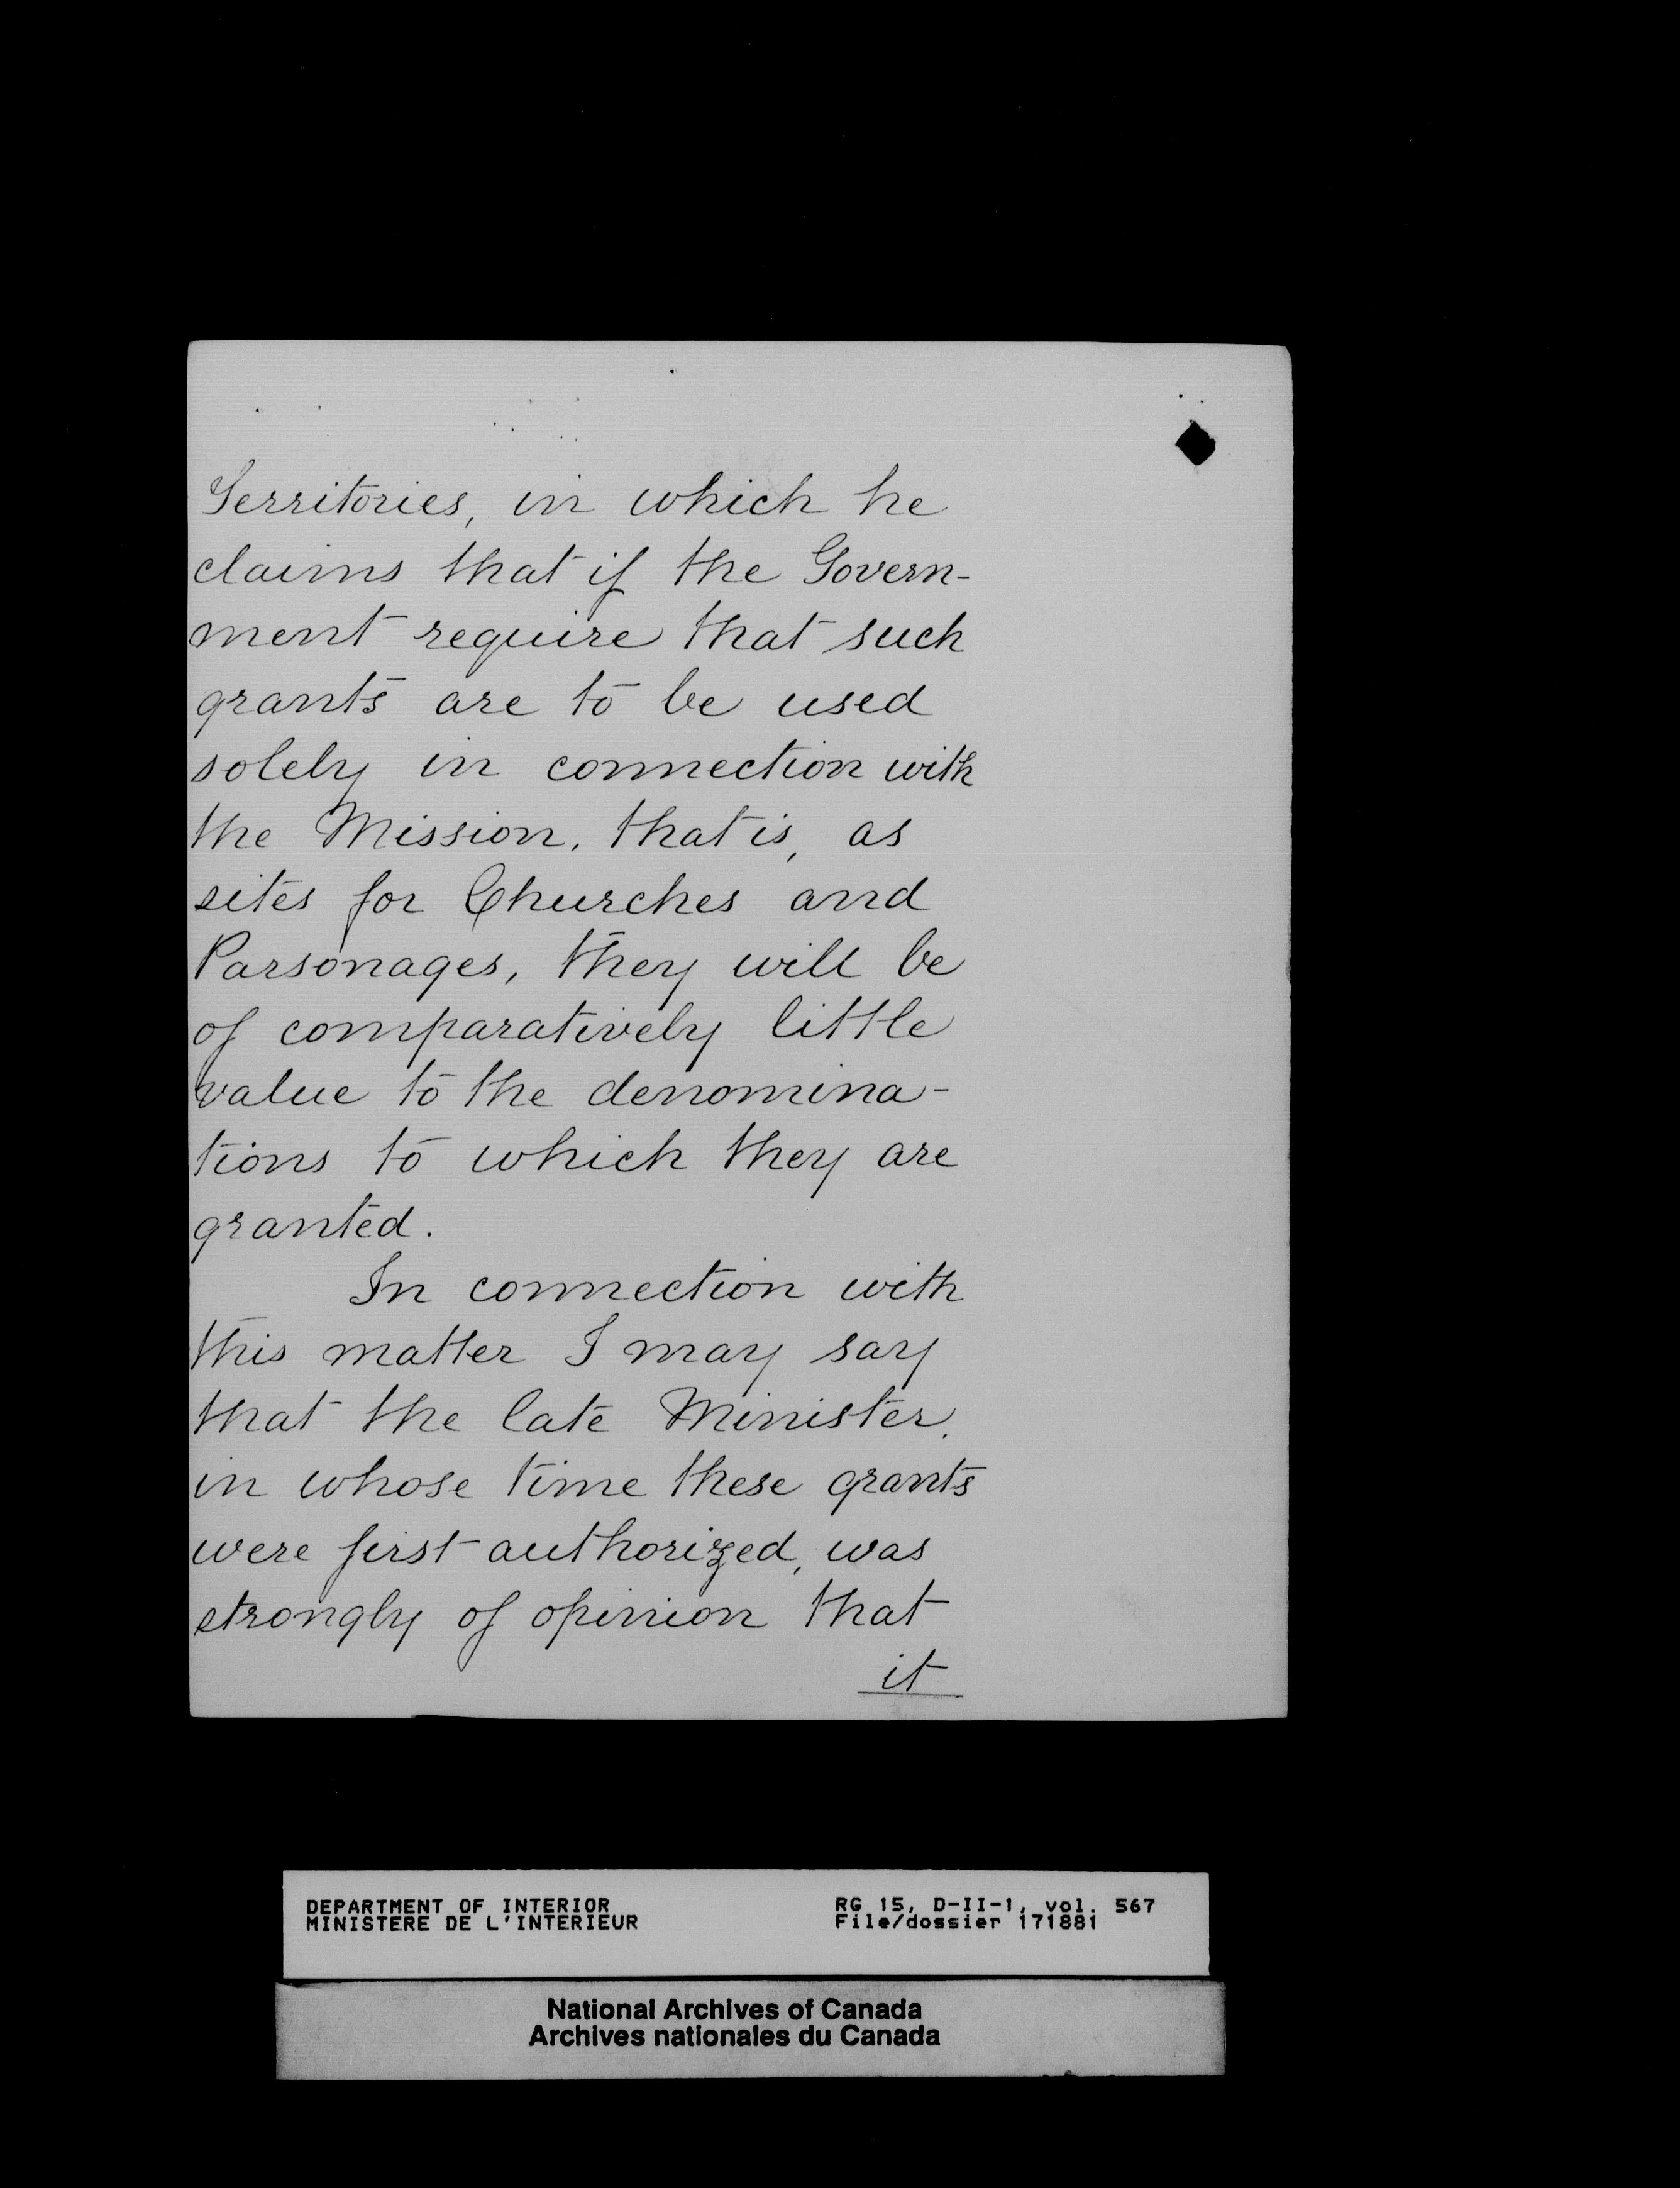 Territories, in which he
claims that if the Govern-
ment require that such
grants are to be used
solely in connection with
the Mission, that is, as
sites for Churches and
Parsonages, they will be
of comparatively little
value to the denomina-
tions to which they are
granted.
In connection with
this matter I may say
that the late Minister,
in whose time these grants
were first authorized, was
strongly of opinion that
it
DEPARTMENT OF INTERIOR
MINISTERE DE L'INTERIEUR
RG 15, D-II-1, vol. 567
File/dossier 171881
National Archives of Canada
Archives nationales du Canada